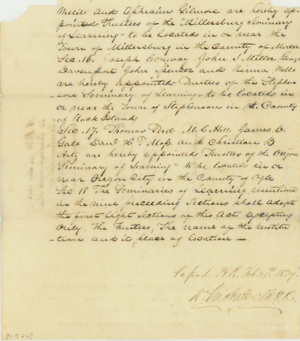 Willits and Ephraim Gilmore are hereby ap-
pointed Trustees of the Millersburg Seminary
of Learning to be Located in or near the
Town of Millersburg in the County of Mercer
Sec. 16. Joseph Conway John S. Miller
Davenport John Spencer and Wells
are hereby appointed Trustees of the Stephen-
son Seminary of Learning to be located in
or near the Town of Stephenson in the County
of Rock Island
Sec. 17. Thomas Ford M. C. Hill James B.
and Christian B
Artz are hereby appointed Trustees of the Oregon
Seminary of Learning to be located in or
near Oregon City in the County of Ogle
Sec 18 The Seminaries of Learning mentioned
in the nine preceding Sections shall adopt
the first eight Sections of this Act excepting
only the Trustees, the name of the institu-
tion and its place of location
H.R. Feb